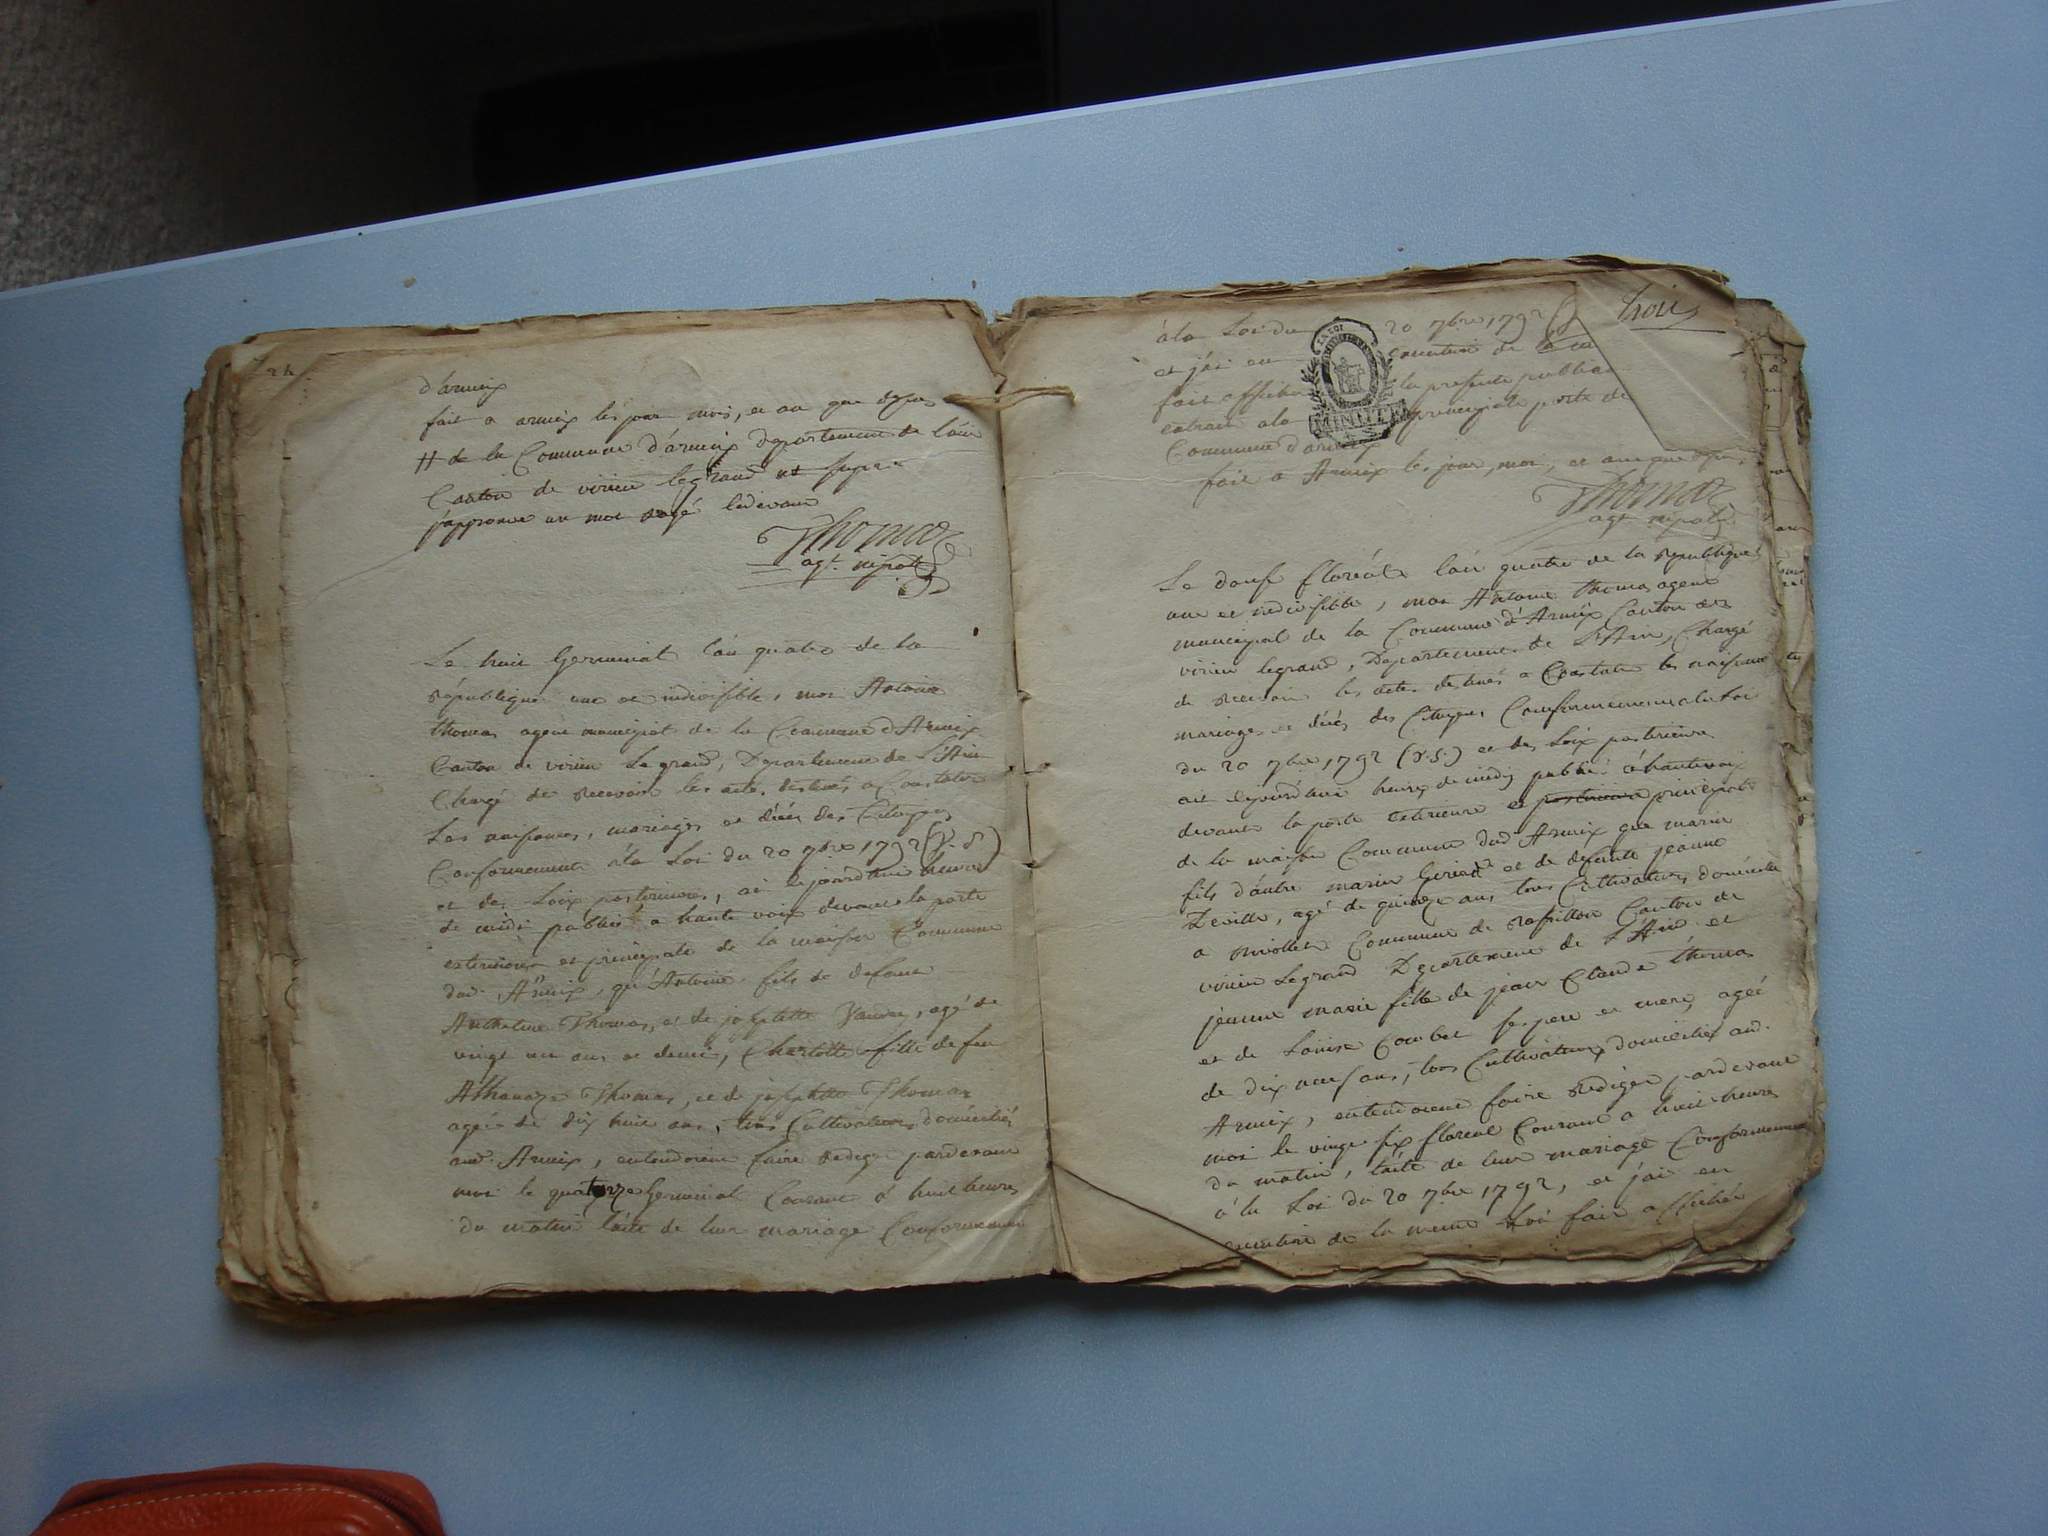 24
d'armix
fait a armix les jour mois, et an que dessus
# de la Commune d'armix departement de l'ain
Canton de virieu legrand
j'approuve un mot rayé cidevant
Thomas
agt. nipal
Le huit Germinal l'an quatre de la
république une et indivisible, moi Antoine
thomas agent municipal de la Commune d'Armix
Canton de virieu Le grand, Departement de L'Ain
Chargé de recevoir les actes destinés a Constater
Les naissances, mariages et décés des Citoyens
Conformement à la Loi du 20 7bre 1792 (v. s.)
et des Loix posterieures, ai cejourdhui heure
de midi publié a haute voix devant la porte
exterieure et principale de la maison Commune
dud. Armix, qu'Antoine fils de defunt
Anthelme Thomas, et de josephte, agé de
vingt un ans et demi, Charlotte fille de feu
Athanaze Thomas, et de josephte Thomas
agée de dix huit ans, tous Cultivateurs domiciliés
aud. Armix, entendoient faire rediger pardevant
moi le quatorze Germinal Courant à huit heures
du matin l'acte de leur mariage Conformement
trois
à la Loi du 20 7bre 1792
et j'ai en execution de la
fait afficher la presente publica
extrait a la principale porte de
Commune d'armix
fait a Armix les jour, moi, et an que dessus
LA LOI
MINUTE
Thomas
agt nipal
Le douse floréal l'an quatre de la republique
une et indivisible, moi Antoine thomas agent
municipal de la Commune d'Armix Canton de
virieu legrand, Departement de L'Ain, Chargé
de recevoir les actes destinés a Constater les naissances
mariages et décés des Citoyens Conformement a la Loi
du 20 7bre 1792 (v.s.) et des Loix posterieures
ait cejourdhui heure de midy publié à hautevoix
devant la porte exterieure et posterieure principale
de la maison Commune dud. Armix que marin
fils d'autre marin et de defunte jeanne
Deville, agé de quinze ans tous Cultivateurs domiciliés
a Commune de rossillon Canton de
virieu Legrand Departement de l'Ain et
jeanne marie fille de jean Claude thomas
et de Louise Combet ses pere et mere, agée
de dix neuf ans, tous Cultivateurs domiciliés aud.
Armix, entendoient faire rediger pardevant
moi le vingt six floreal Courant a huit heures
du matin, l'acte de leur mariage Conformement
à la Loi du 20 7bre 1792, et j'ai en
execution de la meme Loi fait afficher